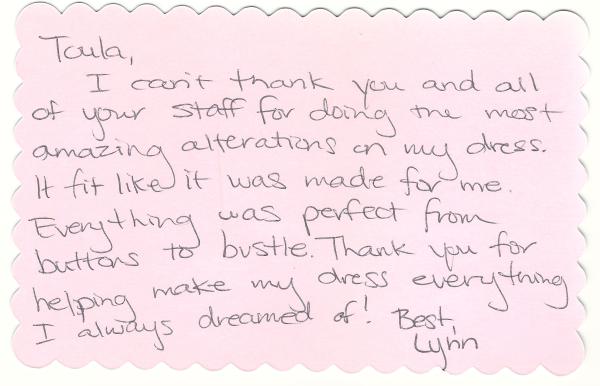 Toula,
I can't thank you and all
of your staff for doing the most
amazing alterations on my dress.
It fit like it was made for me.
Everything was perfect from
buttons to bustle. Thank you for
helping make my dress everything
I always dreamed of! Best,
Lynn